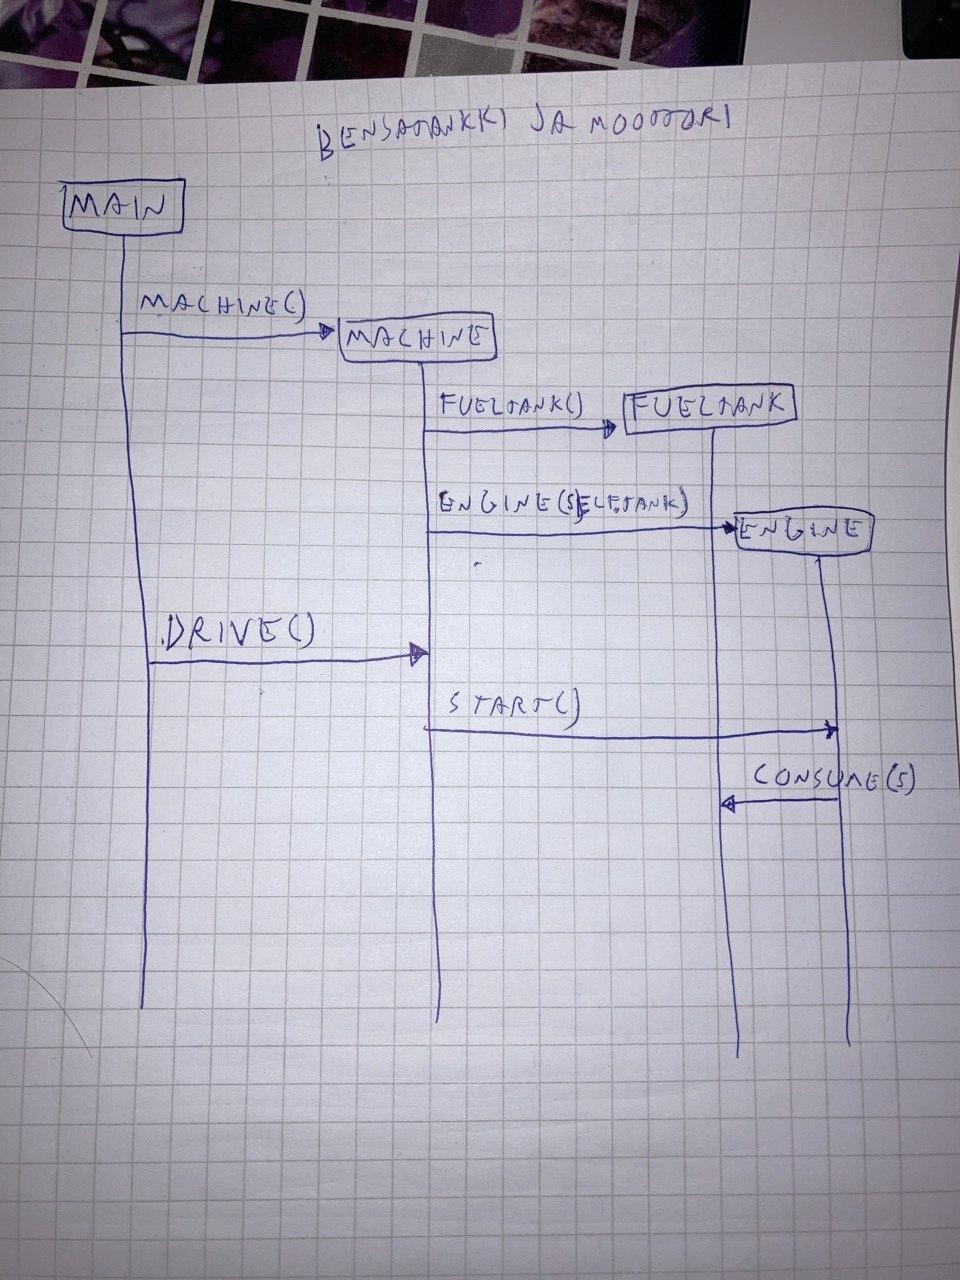 BENSATANKKI JA MOOTTORI
MAIN
MACHINE()
MACHINE
FUELTANK()
FUELTANK
ENGINE(SELF.TANK)
ENGINE
.DRIVE()
START()
CONSUME(5)